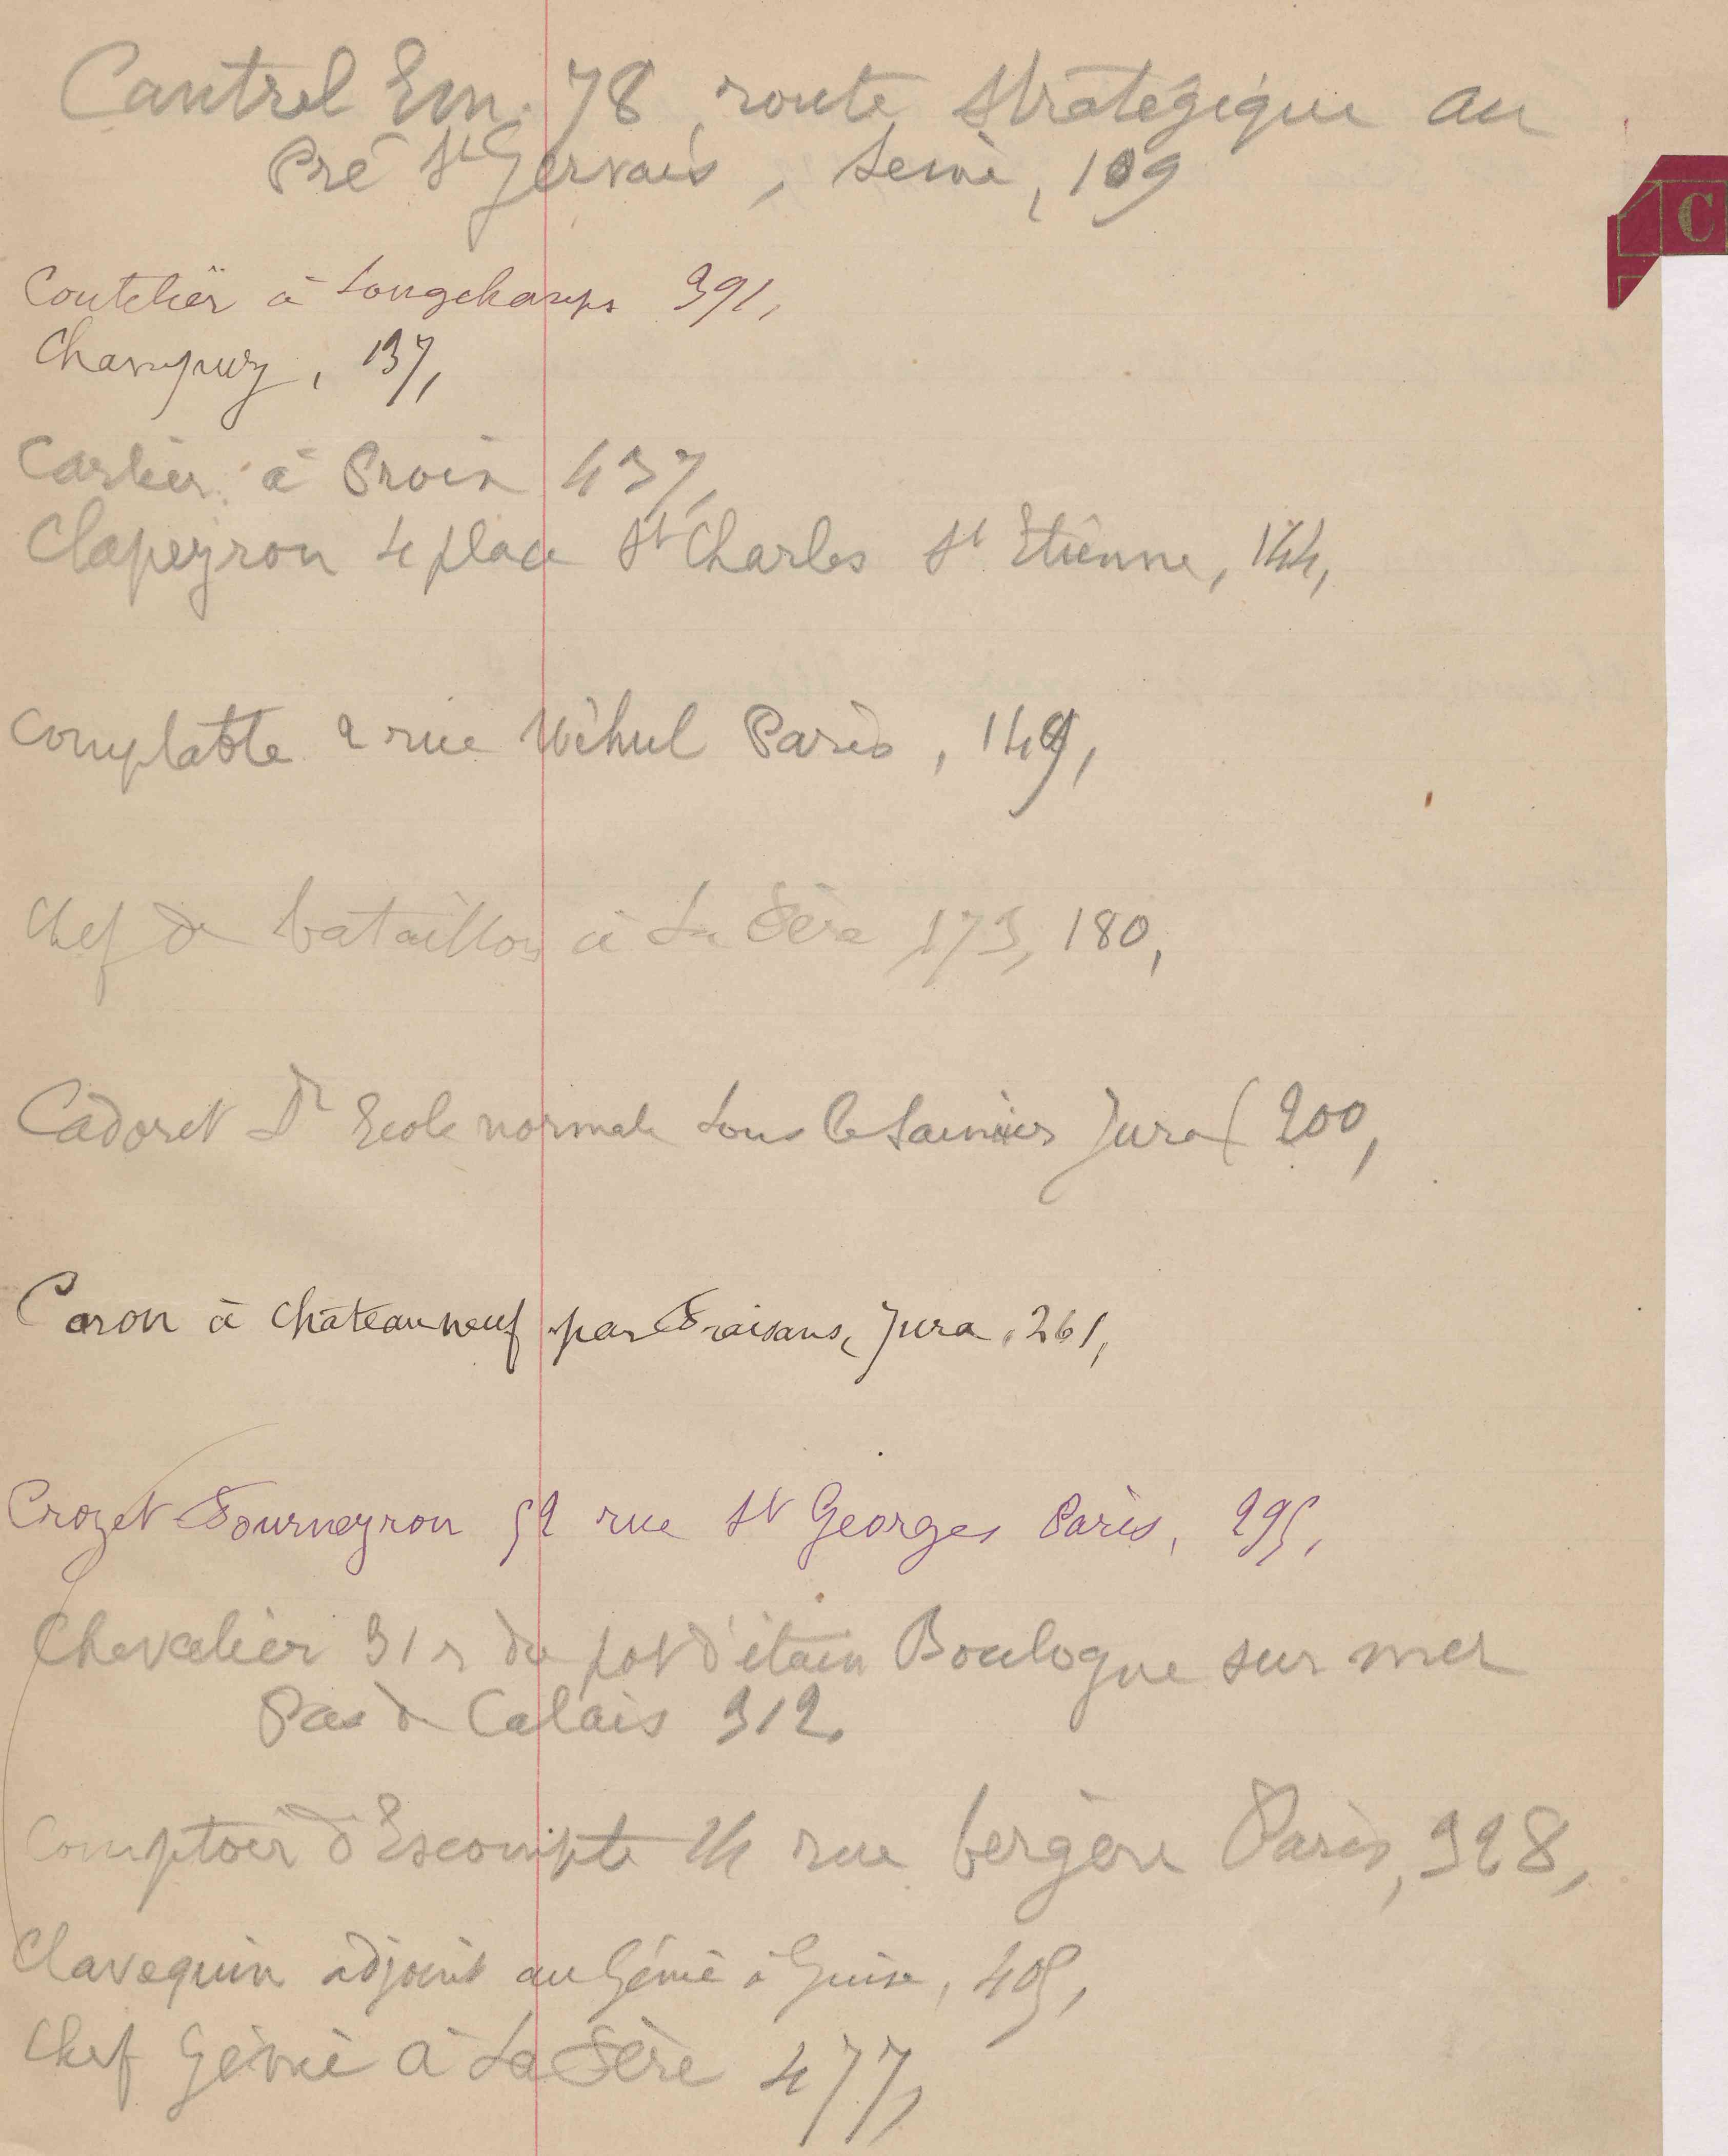 Cantrel Em. 78, route stratégique au
Pré St Gervais, Seine, 109
C
Coutelier à Longchamps 391,
Champury, 137,
Carlier à Proix 437,
Clapeyron 4 place St Charles St Etienne, 144,
Comptable 2 rue Méhul Paris, 149,
Chef de bataillon à La Fère 173, 180,
Cadoret Dr Ecole normale Lons le Saunier Jura 200,
Caron à Châteauneuf par Fraisans, Jura, 261,
Crozet Fourneyron 52 rue St Georges Paris, 295,
Chevalier 31 r du pot d'étain Boulogne sur mer
Pas de Calais 312,
Comptoir d'Escompte 14 rue bergère Paris, 328,
Clavequin adjoint au Génie à Guise, 405,
Chef Génie à La Fère 477,